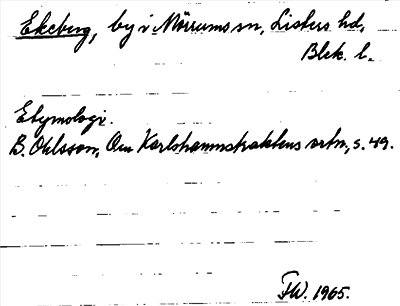 Ekeberg, by i Mörrums sn, Listers hd,
Blek. l.
Etymologi.
B. Ohlsson, Om Karlshamnstraktens ortn, s. 49.
FW. 1965.